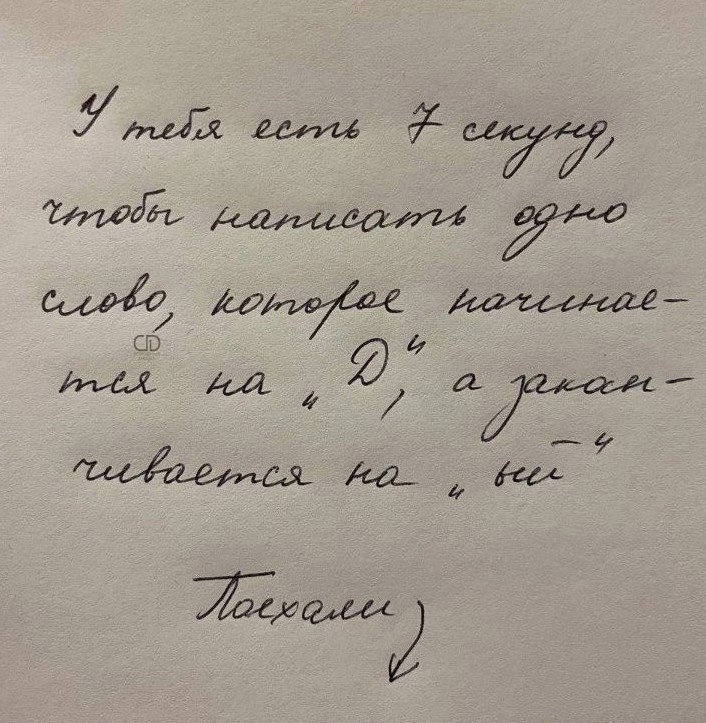 У тебя есть 7 секунд,
чтобы написать одно
слово, которое начинае-
тся на „Д“, а закан-
чивается на „ый“
Поехали